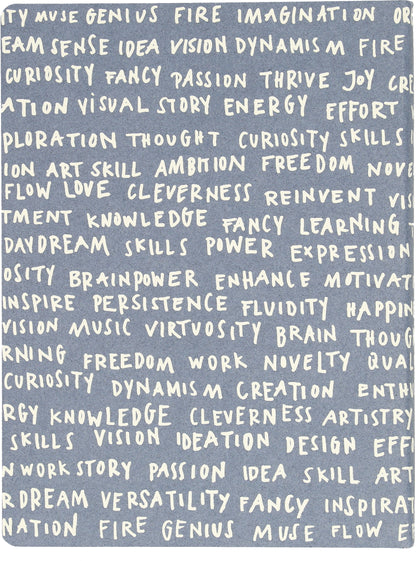 ITY MUSE GENIUS FIRE IMAGINATION OB
EAM SENSE IDEA VISION DYNAMISM FIRE
CURIOSITY FANCY PASSION THRIVE JOY CRE
ATION VISUAL STORY ENERGY EFFORT
PLORATION THOUGHT CURIOSITY SKILLS
ION ART SKILL AMBITION FREEDOM NOVE
FLOW LOVE CLEVERNESS REINVENT VIS
TMENT KNOWLEDGE FANCY LEARNING T
DAYDREAM SKILLS POWER EXPRESSION
OSITY BRAINPOWER ENHANCE MOTIVAT
INSPIRE PERSISTENCE FLUIDITY HAPPIN
VISION MUSIC VIRTUOSITY BRAIN THOUG
RNING FREEDOM WORK NOVELTY QUAL
CURIOSITY DYNAMISM CREATION ENTH
RGY KNOWLEDGE CLEVERNESS ARTISTRY
SKILLS VISION IDEATION DESIGN EFF
N WORK STORY PASSION IDEA SKILL ART
R DREAM VERSATILITY FANCY INSPIRAT
NATION FIRE GENIUS MUSE FLOW E